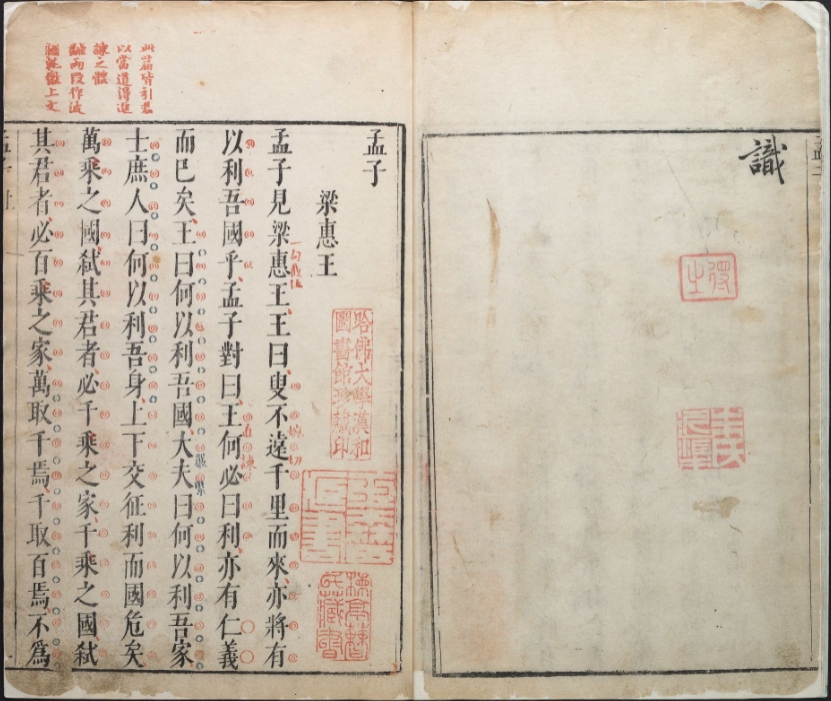 識
此篇皆引君
以當道得進
諫之體
孟子
梁惠王
哈佛大學漢和
圖書館珍藏印
孟子見梁惠王、王曰、叟不遠千里而來、亦將有
以利吾國乎、孟子對曰、王何必曰利、亦有仁義
而已矣、王曰何以利吾國、大夫曰何以利吾家、
士庶人曰何以利吾身、上下交征利而國危矣、
萬乘之國、弒其君者、必千乘之家、千乘之國、弒
其君者、必百乘之家、萬取千焉、千取百焉、不爲